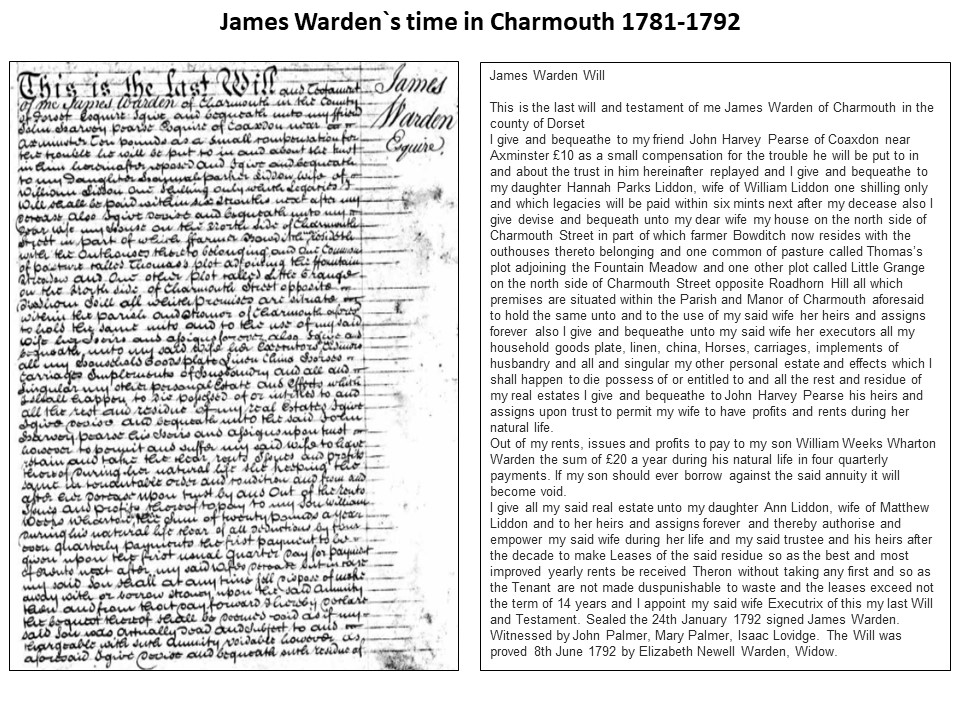 James Warden`s time in Charmouth 1781-1792
This is the last Will and Testament
of me James Warden of Charmouth in the County
of Dorset Esquire I give and bequeath unto my friend
John Harvey Pearse Esquire of Coaxdon near
Axminster Ten pounds as a small compensation for
the trouble he will be put to in and about the trust
in him hereinafter reposed And I give and bequeath
to my Daughter Hannah parker Liddon wife of
William Liddon One Shilling only which Legacies I
Will shall be paid within six Months next after my
decease Also I give devise and bequeath unto my
Dear wife my House on the North side of Charmouth
Street in part of which ffarmer Bowditch resideth
with the Outhouses thereto belonging and One Common
of pasture called Thomas's plot adjoining the ffountain
Meadow and One other plot called Little Grange
on the North side of Charmouth Street opposite
Hill all which premises are situate
within the parish and Manor of Charmouth afores
to hold the same unto and to the use of my said
wife her Heirs and assigns for ever also I give and
bequeath unto my said wife her Executors
all my Household Goods plate Linen China Horses
Carriages Implements of Husbandry and all and
singular my other personal Estate and Effects which
I shall happen to die possessed of or intitled to and
all the rest and residue of my real Estates I give
I give devise and bequeath unto the said John
Harvey pearse his Heirs and assigns upon trust
however to permit and suffer my said wife to have
retain and take the clear rents Issues and profits
thereof during her natural life she keeping the
same in tenantable order and condition and from and
after her decease upon trust by and Out of the rents
Issues and profits thereof to pay to my son William
Weeks Wharton the sum of twenty pounds a year
during his natural life clear of all deductions by four
even quarterly payments the first payment to be
given upon the first usual Quarter Day for payment
of rents next after my said wifes decease but in case
my said son shall at any time sell dispose of make
away with or borrow money upon the said Annuity
then and from that day forward I hereby declare
the bequest thereof shall be deemed void as if my
said son was actually dead and subject to and
chargeable with such Annuity voidable however as
aforesaid I give devise and bequeath such residue of
James
Warden
Esquire.
James Warden Will
This is the last will and testament of me James Warden of Charmouth in the
county of Dorset
I give and bequeathe to my friend John Harvey Pearse of Coaxdon near
Axminster £10 as a small compensation for the trouble he will be put to in
and about the trust in him hereinafter replayed and I give and bequeathe to
my daughter Hannah Parks Liddon, wife of William Liddon one shilling only
and which legacies will be paid within six mints next after my decease also I
give devise and bequeath unto my dear wife my house on the north side of
Charmouth Street in part of which farmer Bowditch now resides with the
outhouses thereto belonging and one common of pasture called Thomas's
plot adjoining the Fountain Meadow and one other plot called Little Grange
on the north side of Charmouth Street opposite Roadhorn Hill all which
premises are situated within the Parish and Manor of Charmouth aforesaid
to hold the same unto and to the use of my said wife her heirs and assigns
forever also I give and bequeathe unto my said wife her executors all my
household goods plate, linen, china, Horses, carriages, implements of
husbandry and all and singular my other personal estate and effects which I
shall happen to die possess of or entitled to and all the rest and residue of
my real estates I give and bequeathe to John Harvey Pearse his heirs and
assigns upon trust to permit my wife to have profits and rents during her
natural life.
Out of my rents, issues and profits to pay to my son William Weeks Wharton
Warden the sum of £20 a year during his natural life in four quarterly
payments. If my son should ever borrow against the said annuity it will
become void.
I give all my said real estate unto my daughter Ann Liddon, wife of Matthew
Liddon and to her heirs and assigns forever and thereby authorise and
empower my said wife during her life and my said trustee and his heirs after
the decade to make Leases of the said residue so as the best and most
improved yearly rents be received Theron without taking any first and so as
the Tenant are not made duspunishable to waste and the leases exceed not
the term of 14 years and I appoint my said wife Executrix of this my last Will
and Testament. Sealed the 24th January 1792 signed James Warden.
Witnessed by John Palmer, Mary Palmer, Isaac Lovidge. The Will was
proved 8th June 1792 by Elizabeth Newell Warden, Widow.